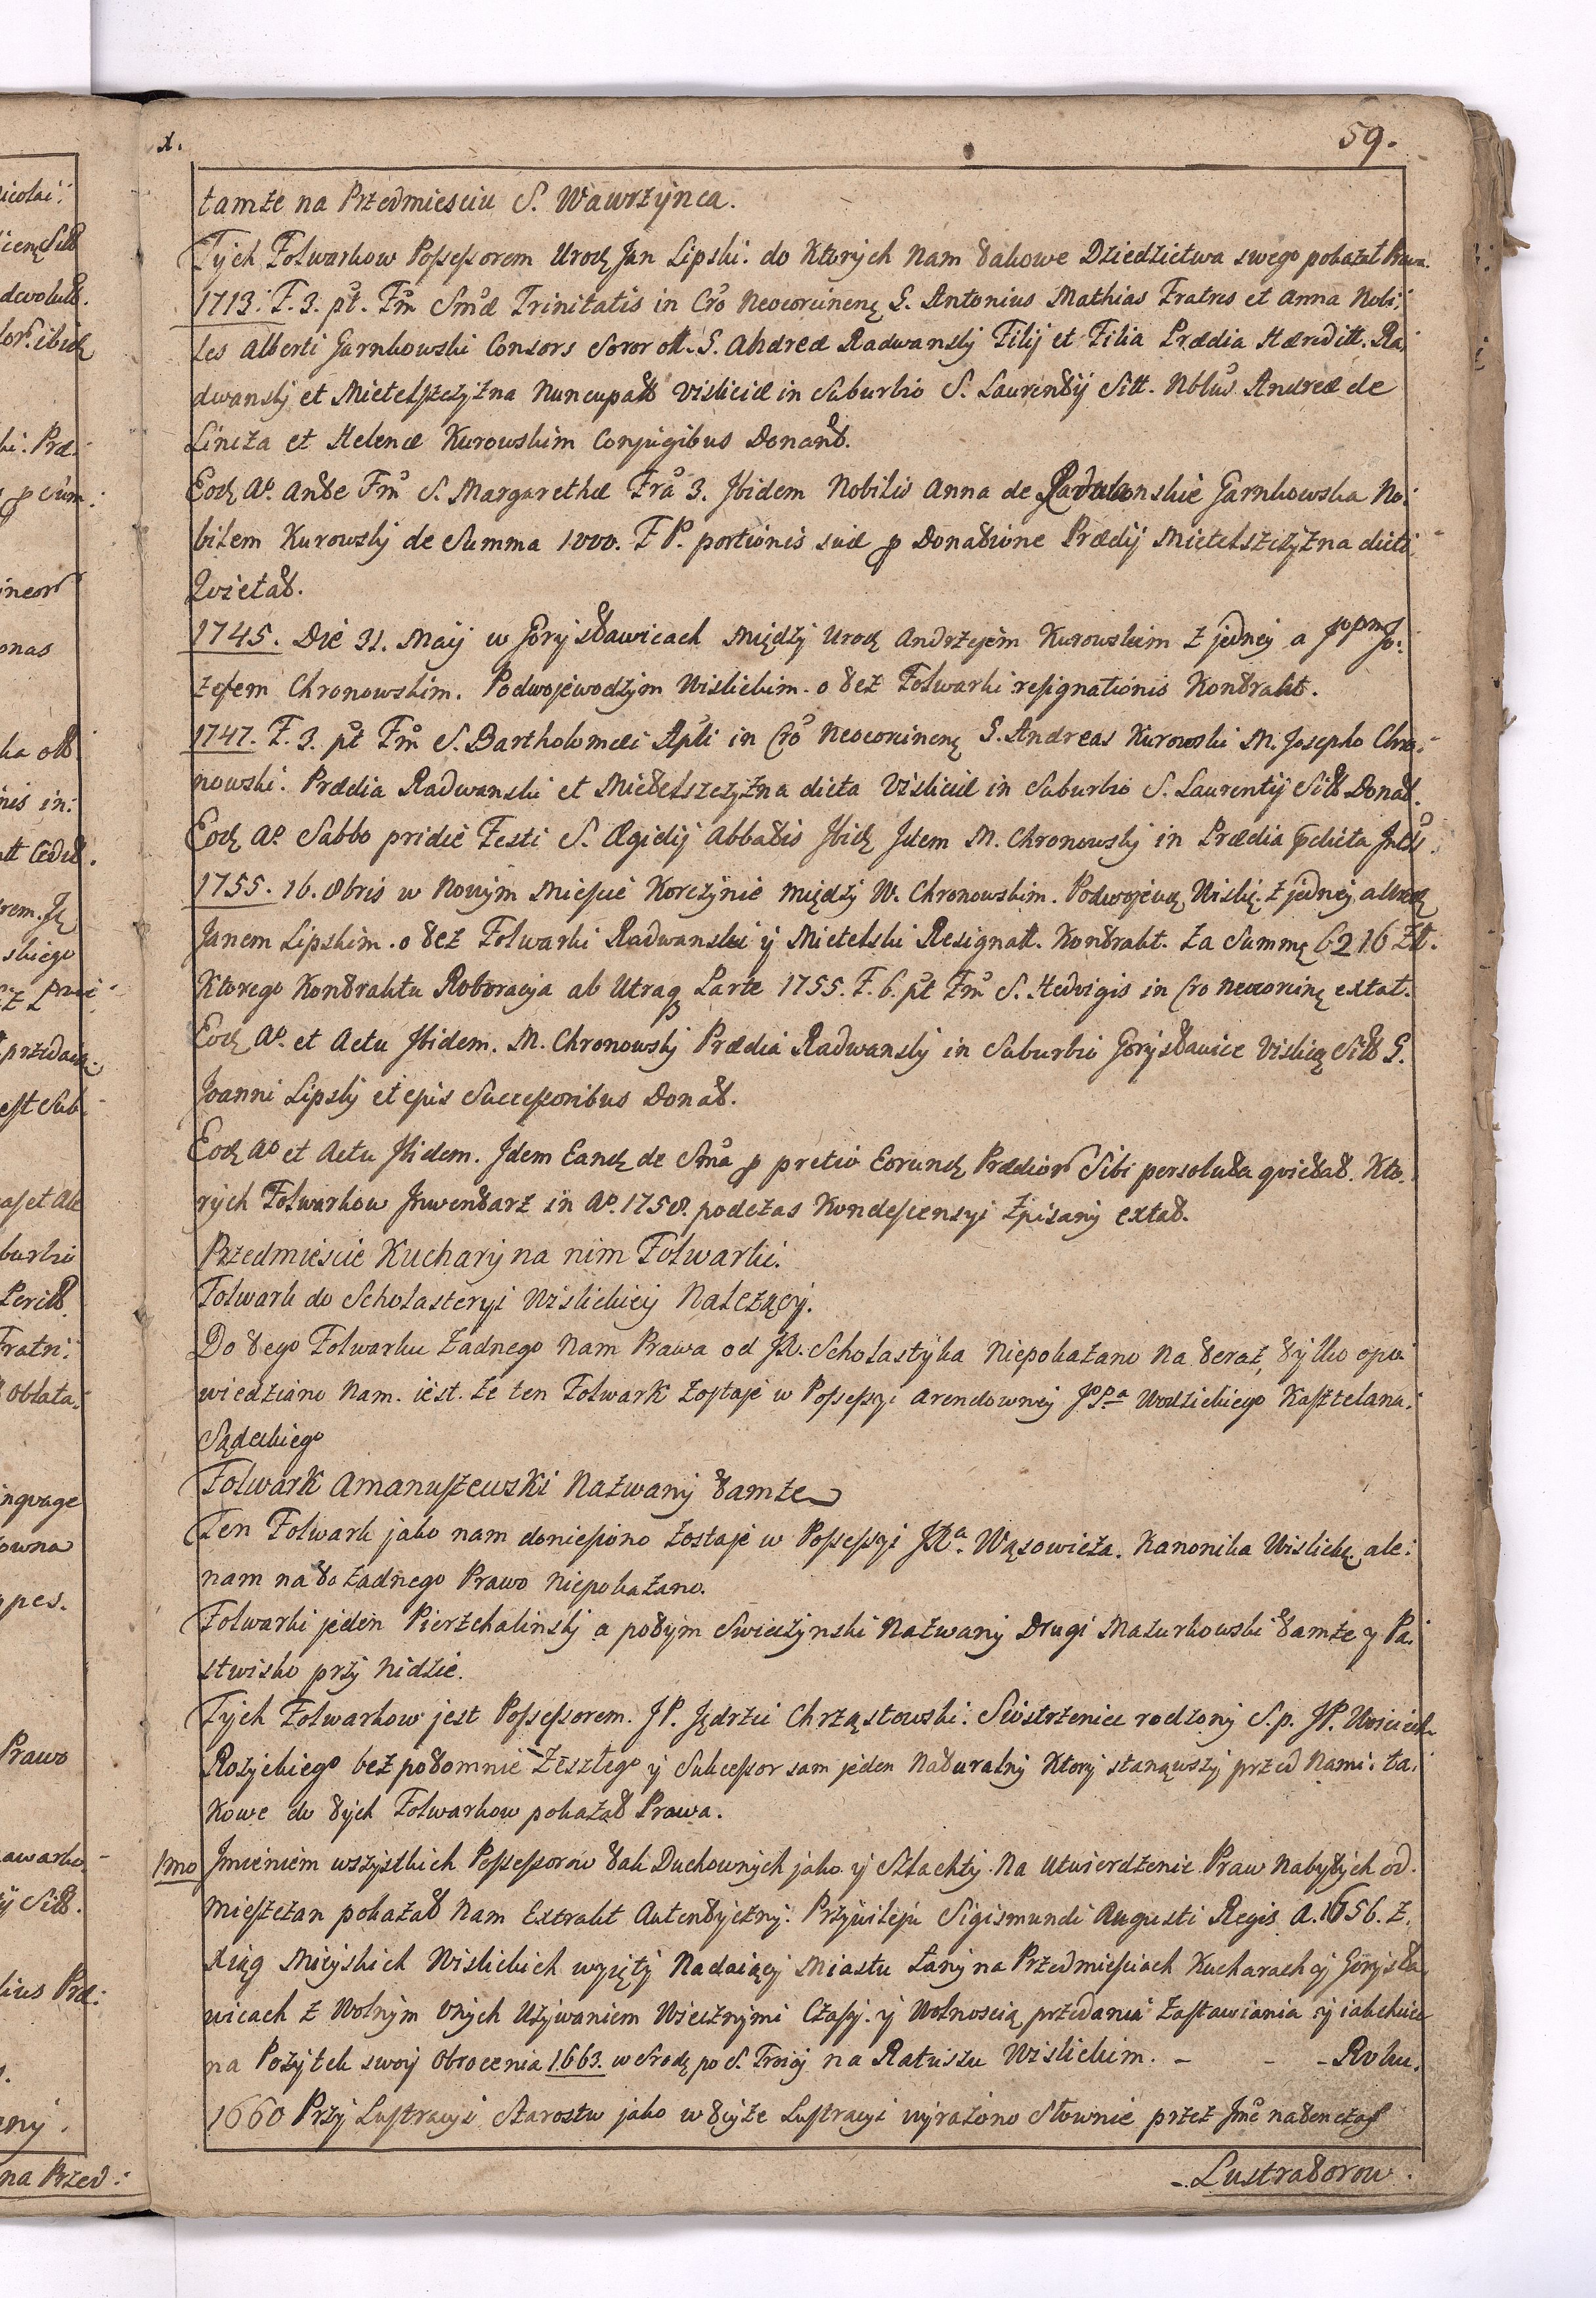 59.
tamże na Przedmiesciu S. Wawrzynca.
Tych Folwarkow Possessorem Urodz Jan Lipski. do Ktorych Nam takowe Dziedzictwa swego pokazał Prawa.
1713. F. 3. pt. Fm Smæ Trinitatis in Cro Neocorcinenę G. Antonius Mathias Fratres et Anna Nobi:
les Alberti Garnkowski Consors Soror ołł. G. Andreæ Radwansky Filij et Filia Prædia Hæreditt. Ra:
dwansky et Mietelszczyzna Nuncupatt Visliciæ in Suburbio S. Laurentij Sitt. Nblus Andreæ de
Lincza et Helenæ Kurowskim Conjugibus Donant.
Eodz Ao. Ante Fm S. Margarethæ Fra 3. Ibidem Nobilis Anna de Radwanskie Garnkowska No:
bilem Kurowsky de Summa 1000. F P. portionis suæ p Donatione Prædij Mietelszczyzna dicti
Qvietat.
1745. Die 31. Maij w Gorysławicach między Urodz Andrzejem Kurowskim z jedney a Jo:
zefem Chronowskim. Podwojewodzym Wislickim. o też Folwarki resignationis Kontrakt.
1747. F. 3. pt Fm S. Bartholomæi Apli in Cro Neocorcinenę G. Andreas Kurowski M. Josepho Chro:
nowski. Prædia Radwanski et Mietelszczyzna dicta Visliciæ in Suburbio S. Laurentij Sitt Donat.
Eodz Ao. Sabbo pridie Festi S. Ægidij Abbatis Ibidz Idem M. Chronowsky in Prædia pdicta
1755. 16. 8bris w Nowym Miescie Korczynie między W. Chronowskim. Podwojewdz Wislię. z jedney, a Urodz
Janem Lipskim. o też Folwarki Radwanski y Mietelski Resignatt. Kontrakt. za Summę 6216 Złł.
Ktorego Kontraktu Roboracya ab Utraq Parte 1755. F. 6. pt Fm S. Hedvigis in Cro Neocorcinę extat.
Eodz Ao. et Actu Ibidem. M. Chronowsky Prædia Radwansky in Suburbio Gorysławice Vislicę Sitt G.
Joanni Lipsky et ejus Successoribus Donat.
Eodz Ao et Actu Ibidem. Idem Eandz de Sma p pretio Eorundz Prædior Sibi persoluta qvietat. Kto:
rych Folwarkow Jnwentarz in Ao. 1758. podczas Kondescensyi Zpisany extat.
Przedmiescie Kuchary na nim Folwarki.
Folwark do Scholasteryi Wislickiey Nalezący.
Do tego Folwarku Zadnego Nam Prawa od JX. Scholastyka Niepokazano Na teraz, tylko opo:
wiedziano Nam. iest. ze ten Folwark Zostaje w Possessyi Arendowney Wodzickiego Kasztelana
Sądeckiego
Folwark Amanuszewski Nazwany tamże
Ten Folwark jako nam doniesiono Zostaje w Possessyi JXa. Wąsowicza. Kanonika Wislickę ale:
nam na to Zadnego Prawo Niepokazano.
Folwarki jeden Pierzchalinsky a potym Swiczynski Nazwany Drugi Mazurkowski tamże y Pa:
stwisko przy Nidzie.
Tych Folwarkow jest Possessorem. JP. Jędrzei Chrząstowski. Siostrzeniec rodzony S.p. JP. Woiciech
Rozyckiego bez potomnie Zeszłego y Sukcessor sam jeden Naturalny Ktory stanąwszy przed Nami. ta:
kowe do tych Folwarkow pokazał Prawa.
1mo Jmieniem wszystkich Possessorow tak Duchownych jako y Szlachty. Na Utwierdzenie Praw Nabytych od.
Mieszczan pokazał Nam Extrakt Autentyczny. Przywileju Sigismundi Augusti Regis A. 1656. z.
Xiąg Mieyskich Wislickich wyjęty Nadaiący Miastu Łany na Przedmiesciach Kucharach y Gorysła
wicach z Wolnym Onych Używaniem Wiecznymi Czasy. y Wolnoscią przedania Zastawiania y iakchcie
na Pożytek swoy Obrocenia 1663. w Srodę po S. Troicy na Ratuszu Wislickim. - - - Roku.
1660 Przy Lustracyi Starostw jako w teyże Lustracyi wyrażono Słownie przez Jmc natenczas
- Lustratorow.